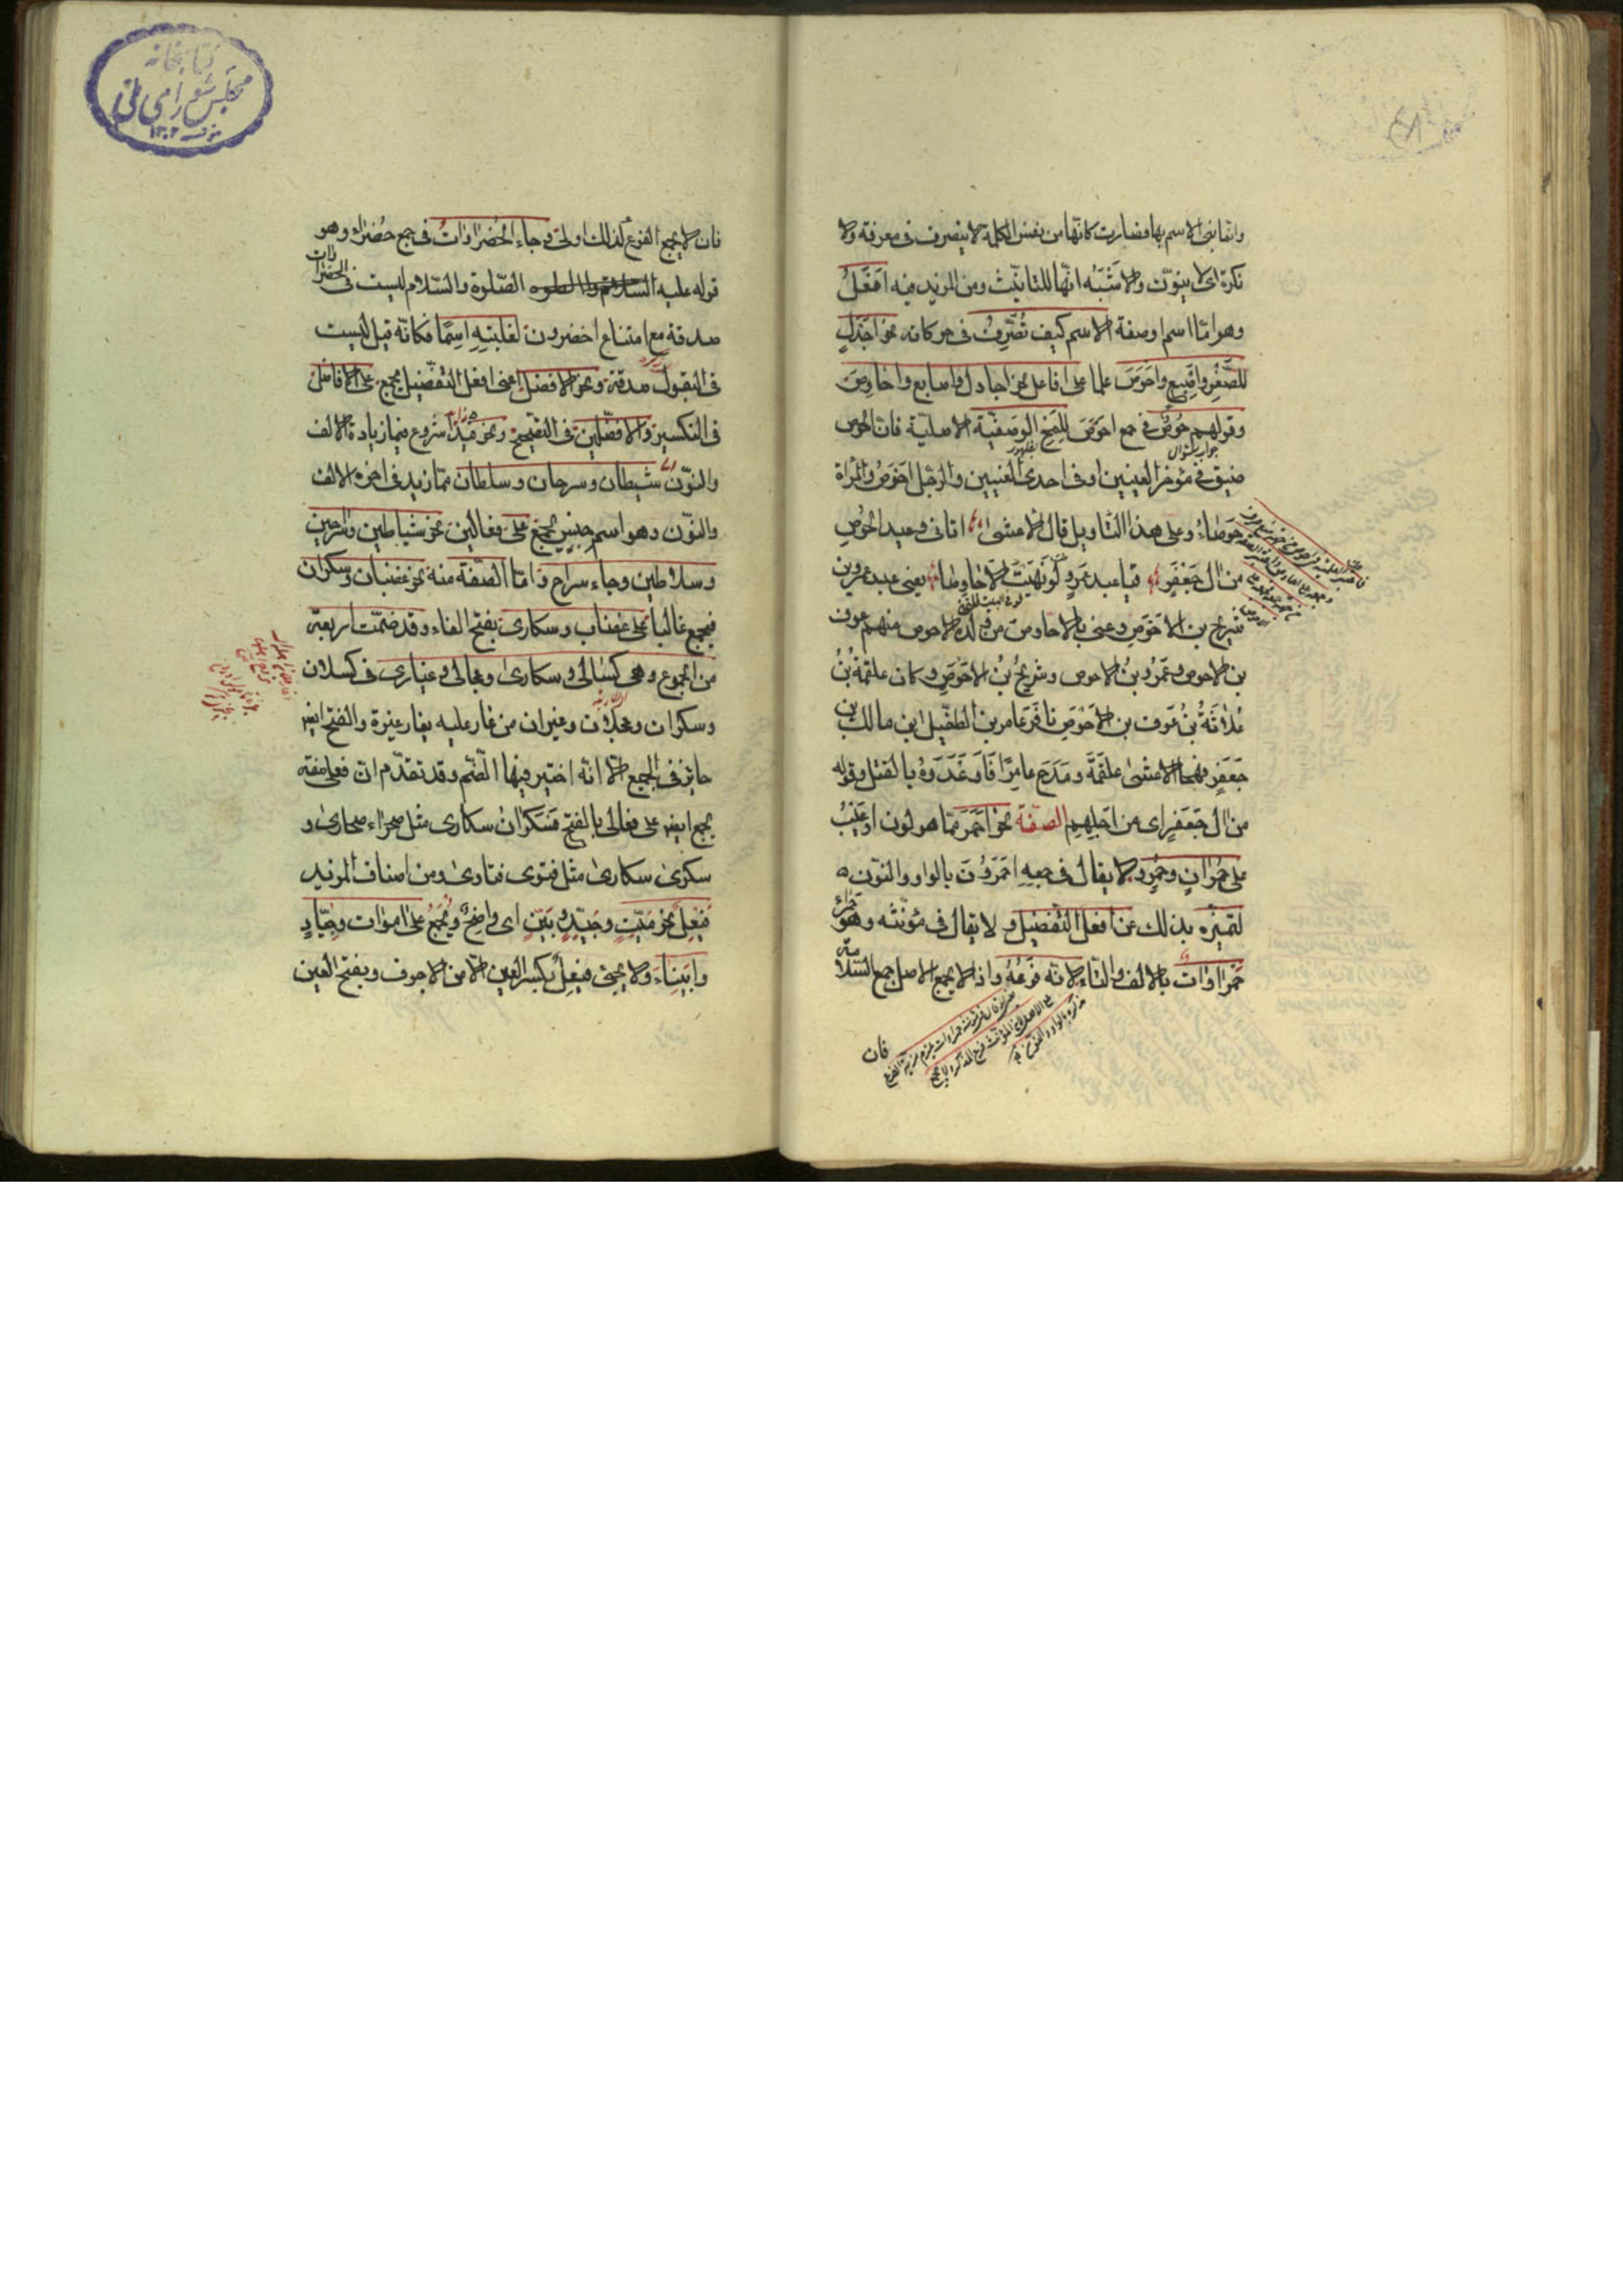 وانما بنی الاسم بها فصارت کانها من نفس الکلمة لا ینصرف فی معرفة ولا
نکرة ای لا ینوّن ولا شُبّه انّها للتانیث ومن المزید فیه اَفْعَلُ
وهو امّا اسم او صفة الاسم کیف تُصُرِّفَ فی حرکاته نحو اَجْدَلٍ
للصَّقْرِ واِصْبَعٍ واَحْوَصَ علما علی افاعل نحو اجادل واصابع واحاوِصَ
وقولهم حُوصٌ فی جمع احوَصَ لِلَمْحِ الوَصْفیّة الاصلیّة فان الحوص
جواب سؤال
ضیق فی مؤخر العینین او فی احدی العینین والرّجل اَحْوَصُ والمراة
حَوصَاءُ وعلی هذا التاویل قال الاعشی اتانی وعید الحُوصِ
من ال جَعْفَرٍ فیا عبد عَمرٍو لَو نَهَیْتَ الاَحاوِصَا یعنی عبد عمرو بن
لو فی البیت للتمنّی
شریح بن الاَحْوَصِ وعنی بالاحاوص من وَلَدَه الاحوص منهم عوف
بن الاحوص وعَمْرُو بنُ الاحوص وشریحُ بنُ الاَحْوَصِ وکان علقمةُ بْنُ
عُلاثَةَ بْنِ عَوف بن الاَحْوَصِ نافَرَ عامر بن الطفیل ابن مالک بن
جَعْفَرٍ فهجا الاعشی علقَمَةَ ومَدَحَ عامِرًا فَاَوعَدَوهُ بالقتل وقوله
من ال جَعْفَرٍ ای من اَجْلِهِم الصفة نحو اَحْمَرَ ممّا هو لون او عَیْبٌ
علی حُمْرَانٍ وحُمْرٍ ولا یقال فی جمعِهِ اَحْمَرُونَ بالواو والنّون
لتمیّزه بذلک عن افعل التفضیل ولا یقال فی مؤنّثه وهو حمراء
حَمْرَاوات بالالف والتاء لانّه فَرْعُهُ واذا لا یجمع الاصل جمع السّلامة
فان
فان لا یجمع الفرع کذلک اولی وجاء الخَضْرَاوَاتُ فی جمع خَضْراء وهو
قوله علیه الصّلوة والسّلام لیست فی الخضراوات
صدقة مع امتناع اخضرون لغلبتِهِ اِسمًا فکانّه قیل لیست
فی البقول صدقة ونحو الافضل اعنی افعل التفضیل یجمع علی الافاضل
فی التکسیر والافضلین فی التصحیح ونحو هذا شروع فیما زیادة الالف
والنّون شیطان وسرحان وسلطان ممّا زید فی اخره الالف
والنّون وهو اسم جِنْسٍ یُجْمَعُ علی فعالین نحو شیاطین وسراحین
وسلاطین وجاء سراح وامّا الصّفة منه نحو غضبان وسکران
فیجمع غالبا علی غضاب وسکاری بفتح الفاء وقد ضمّت اربعة
من الجموع وهی کسالی وسکاری وعجالی وغیاری فی کسلان
وسکران وعجلان وغیران من غار علیه یغار غیرة والفتح ایضا
جایز فی الجمع الا انّه اختیر فیها الضّم وقد تقدّم ان فعلی صفة
یجمع ایضا علی فعالی بالفتح فسکران سکاری مثل صحراء صحاری و
سکری سکاری مثل فتوی فتاوی ومن اصناف المزید
فَیْعِلٌ نحو مَیِّتٍ وجَیِّدٍ وبَیِّنٍ ای واضِحٌ ویُجْمَعُ علی اموات وجِیَادٍ
واَبْیِنَاءَ ولا یجئ فیعِلٌ بکسر العین الّا من الاجوف وبفتح العین
کتابخانه
مجلس شورای ملی